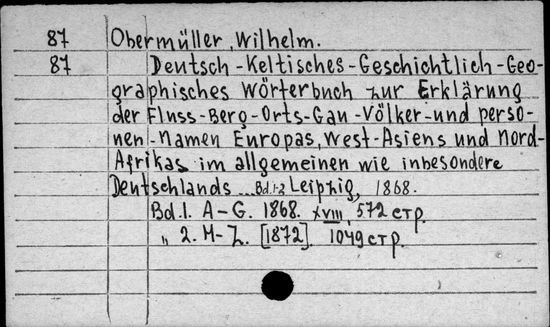 87 Obermüller, Wilhelm.
87 Deutsch-Keltisches-Geschichtlich-Geo-
graphisches Wörterbuch zur Erklärung
der Fluss-Berg-Orts-Gau-Völker-und perso-
nen-Namen Europas, West-Asiens und Nord-
Afrikas im allgemeinen wie inbesondere
Deutschlands... Bd.1-2 Leipzig, 1868.
Bd.1. A-G. 1868. XVIII, 572 стр.
„ 2. H-Z. [1872]. 1049 стр.